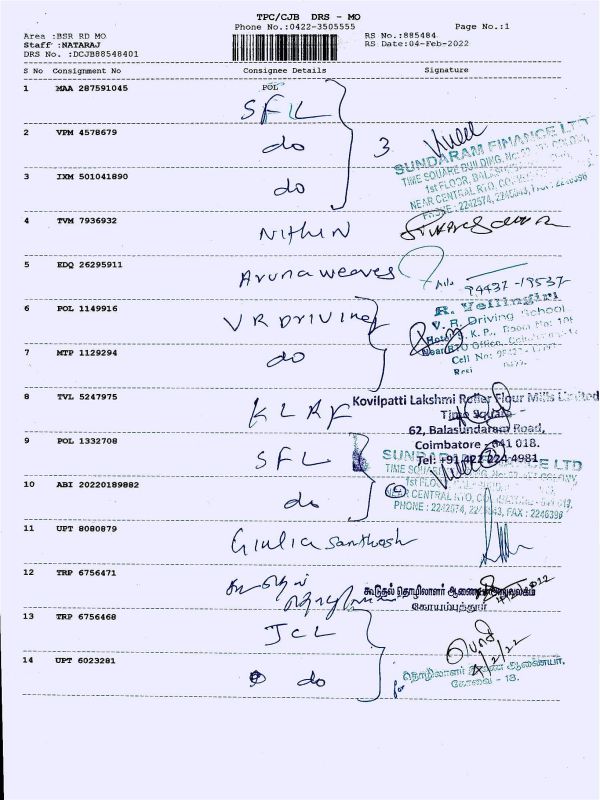 TPC/CJB DRS - MO
Phone No.:0422-3505555
Page No.:1
Area :BSR RD MO
RS No.:885484
Staff :NATARAJ
RS Date:04-Feb-2022
DRS No. :DCJB88548401
S No Consignment No Consignee Details Signature
1 MAA 287591045 POL
SFL
2 VPM 4578679 do 3
SUNDARAM FINANCE LTD
TIME SQUARE BUILDING,
3 IXM 501041890 do
1st FLOOR,
NEAR CENTRAL RTO,
4 TVM 7936932 Nithin
5 EDQ 26295911 Aruna weaves
94437-19537
6 POL 1149916 V R DRIVING
R. Vellingiri
V. R. Driving School
7 MTP 1129294 do
Near RTO Office,
Cell No:
Resi
8 TVL 5247975 KLRF
Kovilpatti Lakshmi Roller Flour Mills Limited
Time Square
62, Balasundaram Road,
Coimbatore - 641 018.
Tel: +91 422 224 4981
9 POL 1332708 SFL
SUNDARAM FINANCE LTD
TIME SQUARE
10 ABI 20220189882 do
1st FLOOR
NEAR CENTRAL RTO,
PHONE : 2242574, 2242543, FAX : 2246396
11 UPT 8080879 Giulia Santhosh
12 TRP 6756471
கூடுதல் தொழிலாளர் ஆணையர் அலுவலகம்
கோயம்புத்தூர்
4/2/2022
13 TRP 6756468 JCL
4/2/22
14 UPT 6023281 do
for
தொழிலாளர் இணை ஆணையர்,
கோவை - 18.